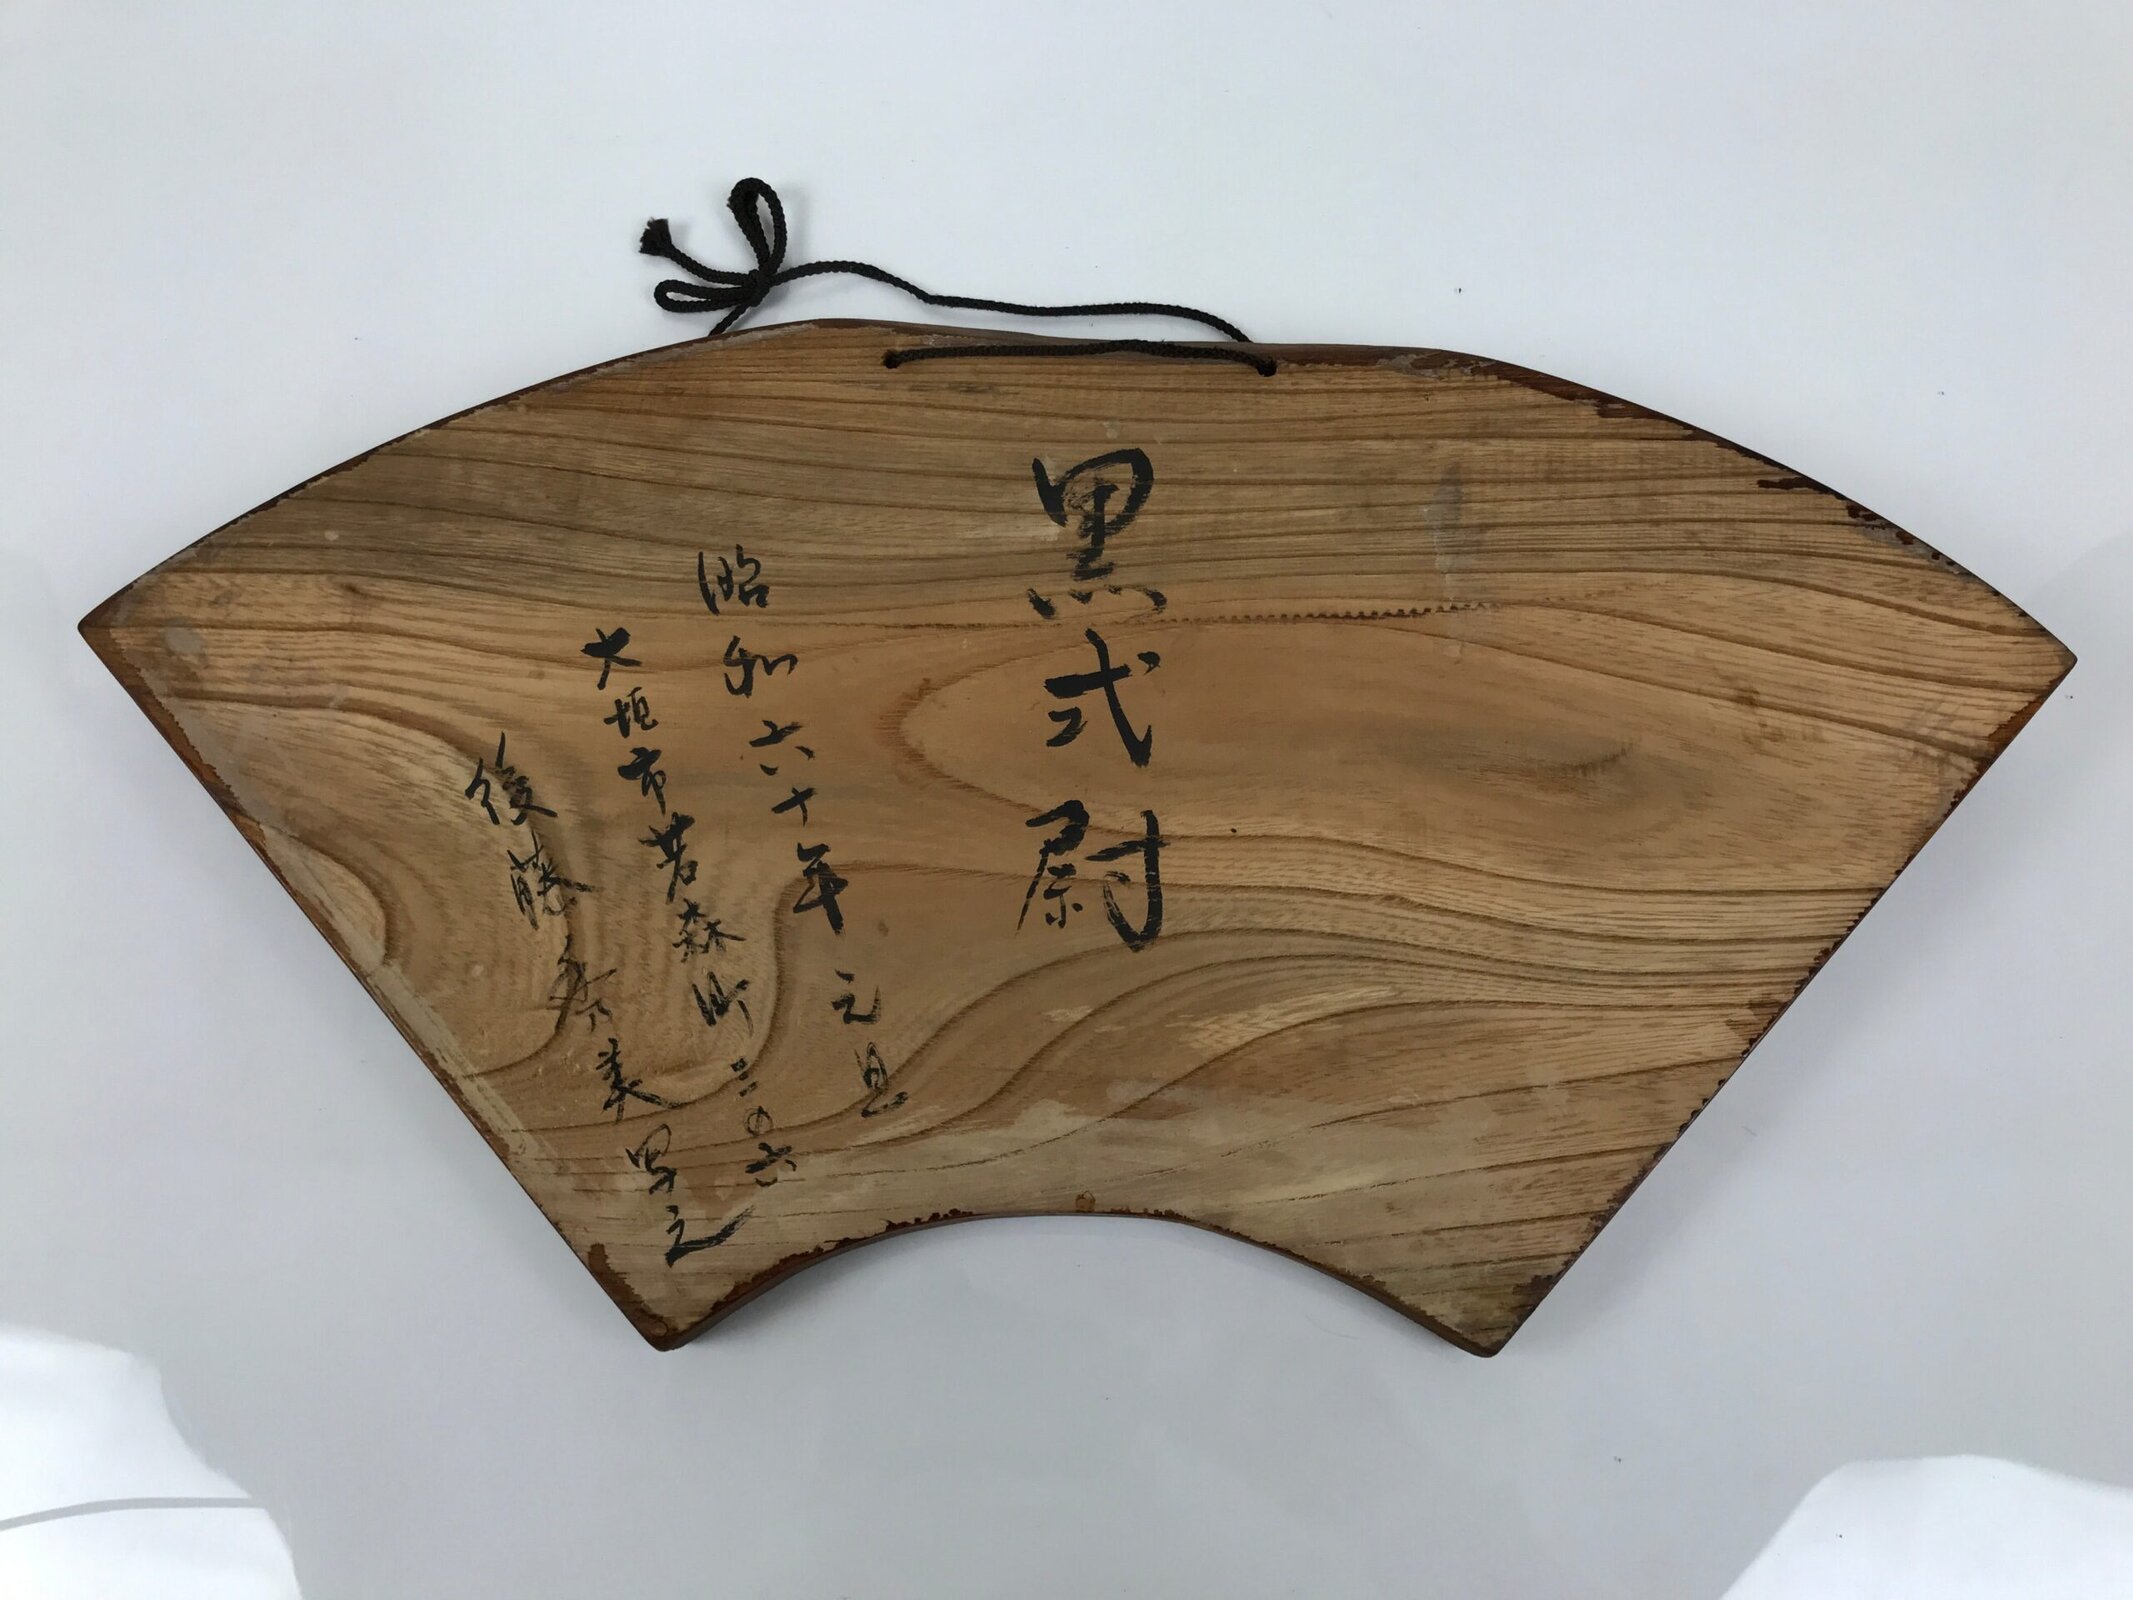 黒式尉
昭和六十年元旦
大垣市若森町三の六
後藤美之